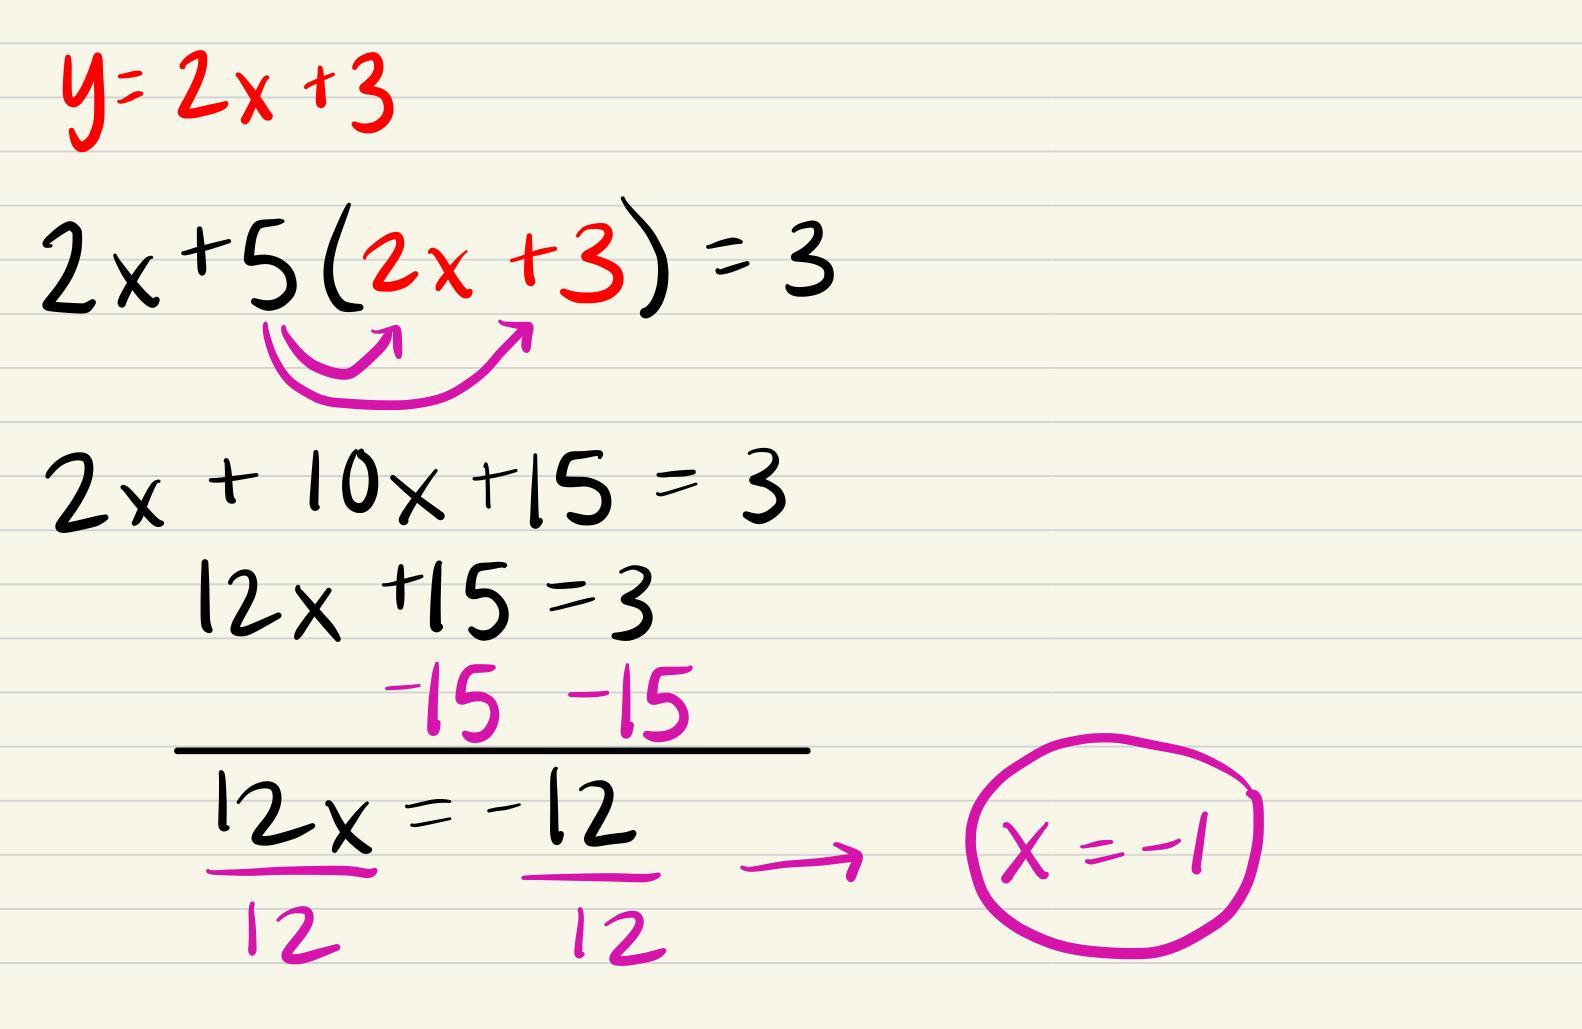 y= 2x +3
2x +5(2x +3) = 3
2x + 10x +15 = 3
12x +15 =3
-15 -15
12x = -12
12 12
→ x = -1